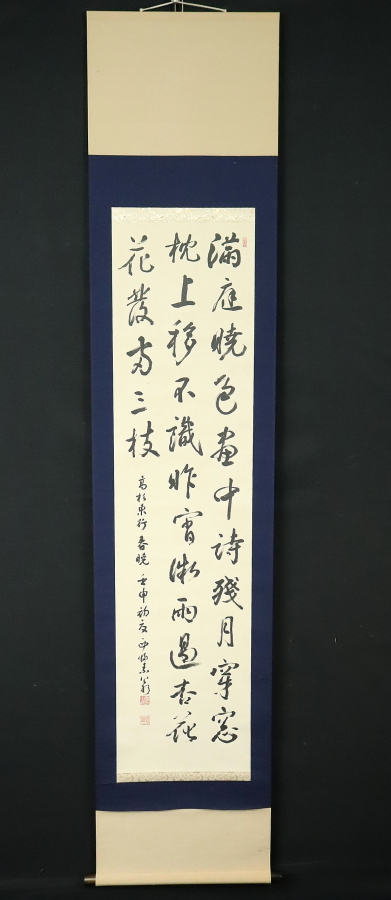 満庭暁色画中詩残月穿窓
枕上移不識昨宵微雨過杏花
花發両三枝
高杉東行 春暁 壬申初夏